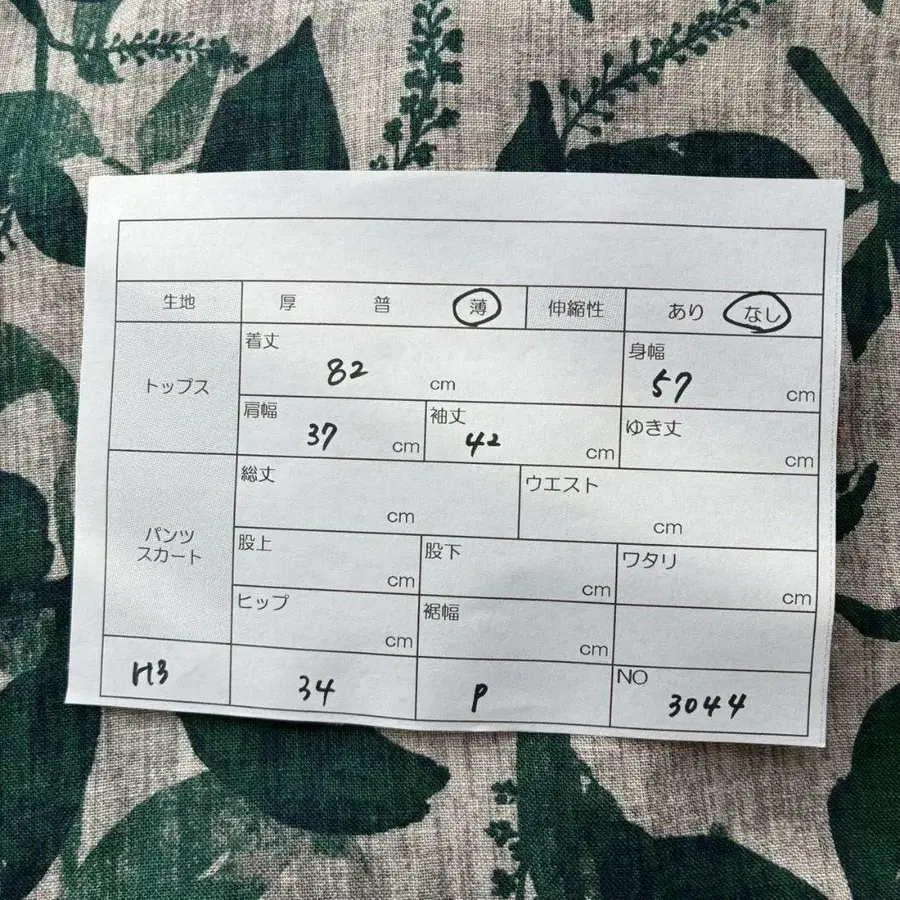 生地 厚 普 薄 伸縮性 あり なし
トップス 着丈 82 cm 身幅 57 cm
肩幅 37 cm 袖丈 42 cm ゆき丈 cm
パンツ スカート 総丈 cm ウエスト cm
股上 cm 股下 cm ワタリ cm
ヒップ cm 裾幅 cm
H3 34 P NO 3044